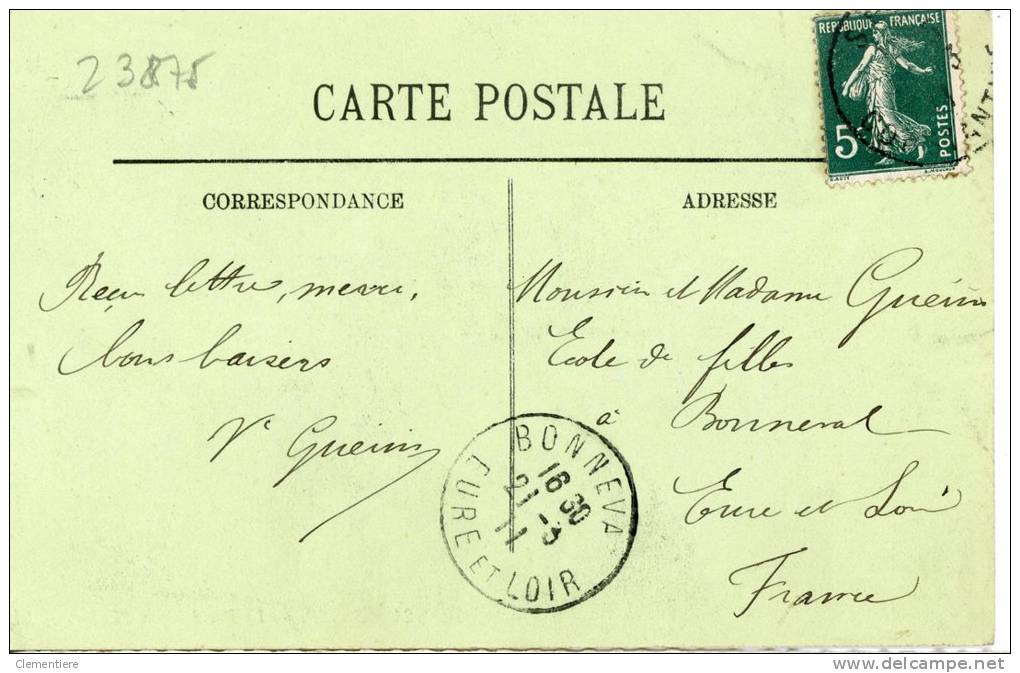 23875
CARTE POSTALE
REPUBLIQUE FRANÇAISE
5
POSTES
CORRESPONDANCE
ADRESSE
Reçu lettre, merci,
bons baisers
Vᵉ Guérin
Monsieur et Madame Guérin
Ecole de filles
à
Bonneval
Eure et Loir
France
BONNEVA
16 30
21 -3
11
EURE ET LOIR
Clementiere
http://www.delcampe.net